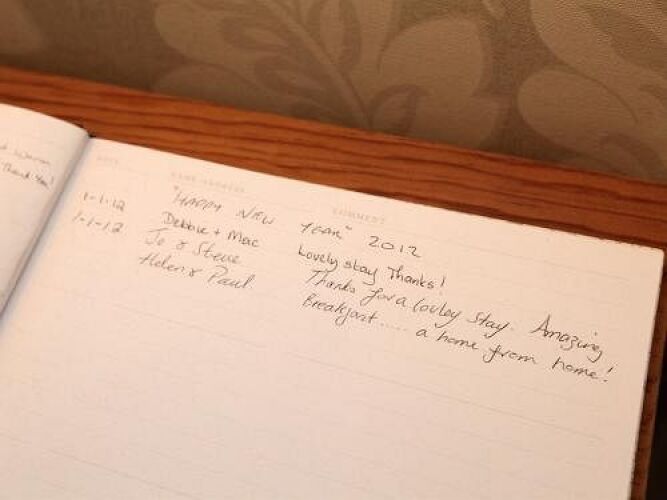 & Warm
Thank You!
DATE NAME/ADDRESS COMMENT
"HAPPY NEW YEAR" 2012
1-1-12 Debbie + Mac Lovely stay Thanks!
1-1-12 Jo & Steve Thanks for a lovley stay. Amazing
Helen & Paul. Breakfast..... a home from home!